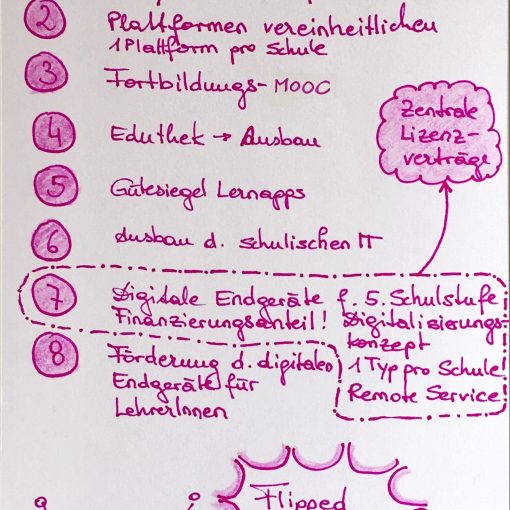 2 Plattformen vereinheitlichen
1 Plattform pro Schule
3 Fortbildungs-MOOC
4 Eduthek → Ausbau
Zentrale
Lizenz-
verträge
5 Gütesiegel Lernapps
6 Ausbau d. schulischen IT
7 Digitale Endgeräte f. 5. Schulstufe
Finanzierungsanteil! Digitalisierungs-
konzept
1 Typ pro Schule!
Remote Service
8 Förderung d. digitalen
Endgeräte für
LehrerInnen
Flipped